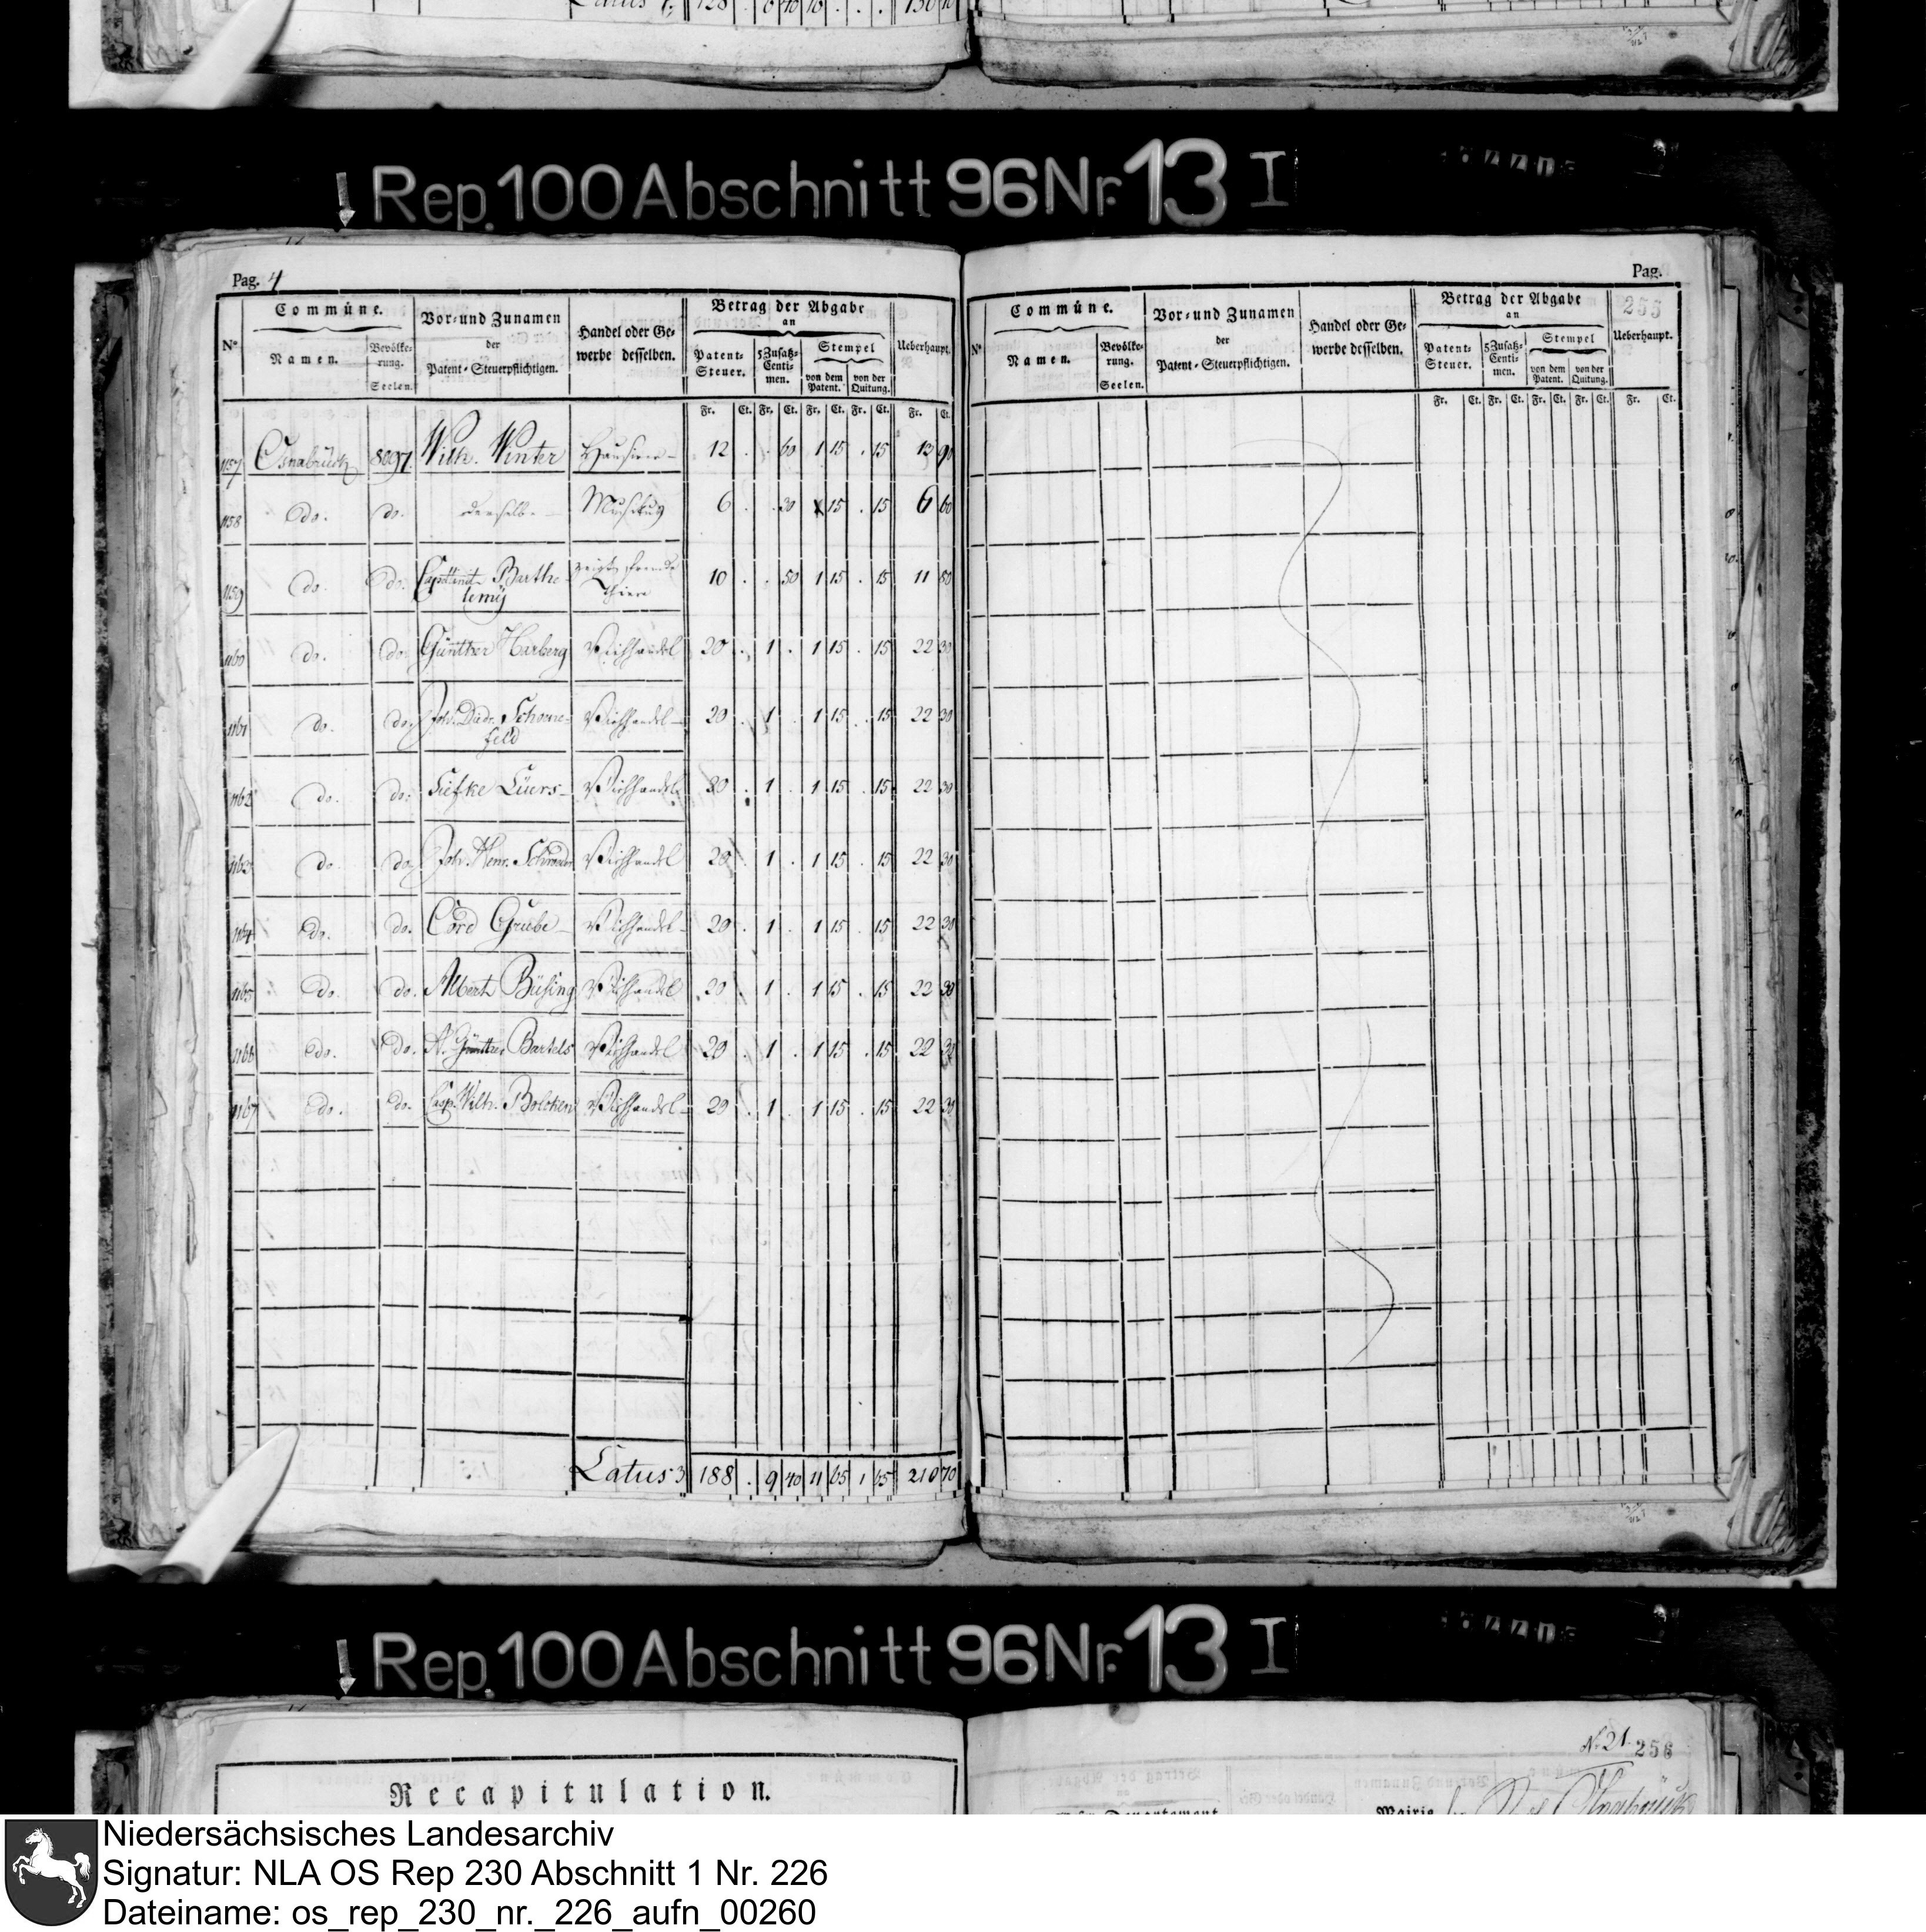 Latus
128 . 6 40 10 . . . 130 10
Rep. 100 Abschnitt 96 Nr. 13 I
Pag. 4
Commüne.
Vor- und Zunamen
der
Patent-Steuerpflichtigen.
Handel oder Ge-
werbe desselben.
Betrag der Abgabe
an
Ueberhaupt.
N°
Namen.
Bevölke-
rung.
Seelen.
Patent-
Steuer.
5 Zusatz-
Centi-
men.
Stempel
von dem
Patent.
von der
Quitung.
Fr. Ct. Fr. Ct. Fr. Ct. Fr. Ct. Fr. Ct.
1157 Osnabrück 8097 Wilh. Winter Hausirer 12 . . 60 1 15 . 15 13 90
1158 do. do. derselbe Musikus 6 . . 30 15 . 15 6 60
1159 do. do. Barthe
lemÿ
zeigt fremde
Thiere
10 . . 50 1 15 . 15 11 80
1160 do. do. Günther Harberg Viehhandel 20 . 1 . 1 15 . 15 22 30
1161 do. do. Joh. Died. Schoene-
feld
Viehhandel 20 . 1 . 1 15 . 15 22 30
1162 do. do. Siefke Lüers Viehhandel 20 . 1 . 1 15 . 15 22 30
1163 do. do. Joh. Henr. Schroeder Viehhandel 20 . 1 . 1 15 . 15 22 30
1164 do. do. Cord Grube Viehhandel 20 . 1 . 1 15 . 15 22 30
1165 do. do. Albert Büsing Viehhandel 20 . 1 . 1 15 . 15 22 30
1166 do. do. A. Günther Bartels Viehhandel 20 . 1 . 1 15 . 15 22 30
1167 do. do. Casp. Wilh. Bolcken Viehhandel 20 . 1 . 1 15 . 15 22 30
Latus 3 188 . 9 40 11 65 1 65 210 70
Pag.
255
Commüne.
Vor- und Zunamen
der
Patent-Steuerpflichtigen.
Handel oder Ge-
werbe desselben.
Betrag der Abgabe
an
Ueberhaupt.
N°
Namen.
Bevölke-
rung.
Seelen.
Patent-
Steuer.
5 Zusatz-
Centi-
men.
Stempel
von dem
Patent.
von der
Quitung.
Fr. Ct. Fr. Ct. Fr. Ct. Fr. Ct. Fr. Ct.
Rep. 100 Abschnitt 96 Nr. 13 I
Recapitulation.
N° 21 256
Departement
Mairie Osnabrück
Niedersächsisches Landesarchiv
Signatur: NLA OS Rep 230 Abschnitt 1 Nr. 226
Dateiname: os_rep_230_nr._226_aufn_00260